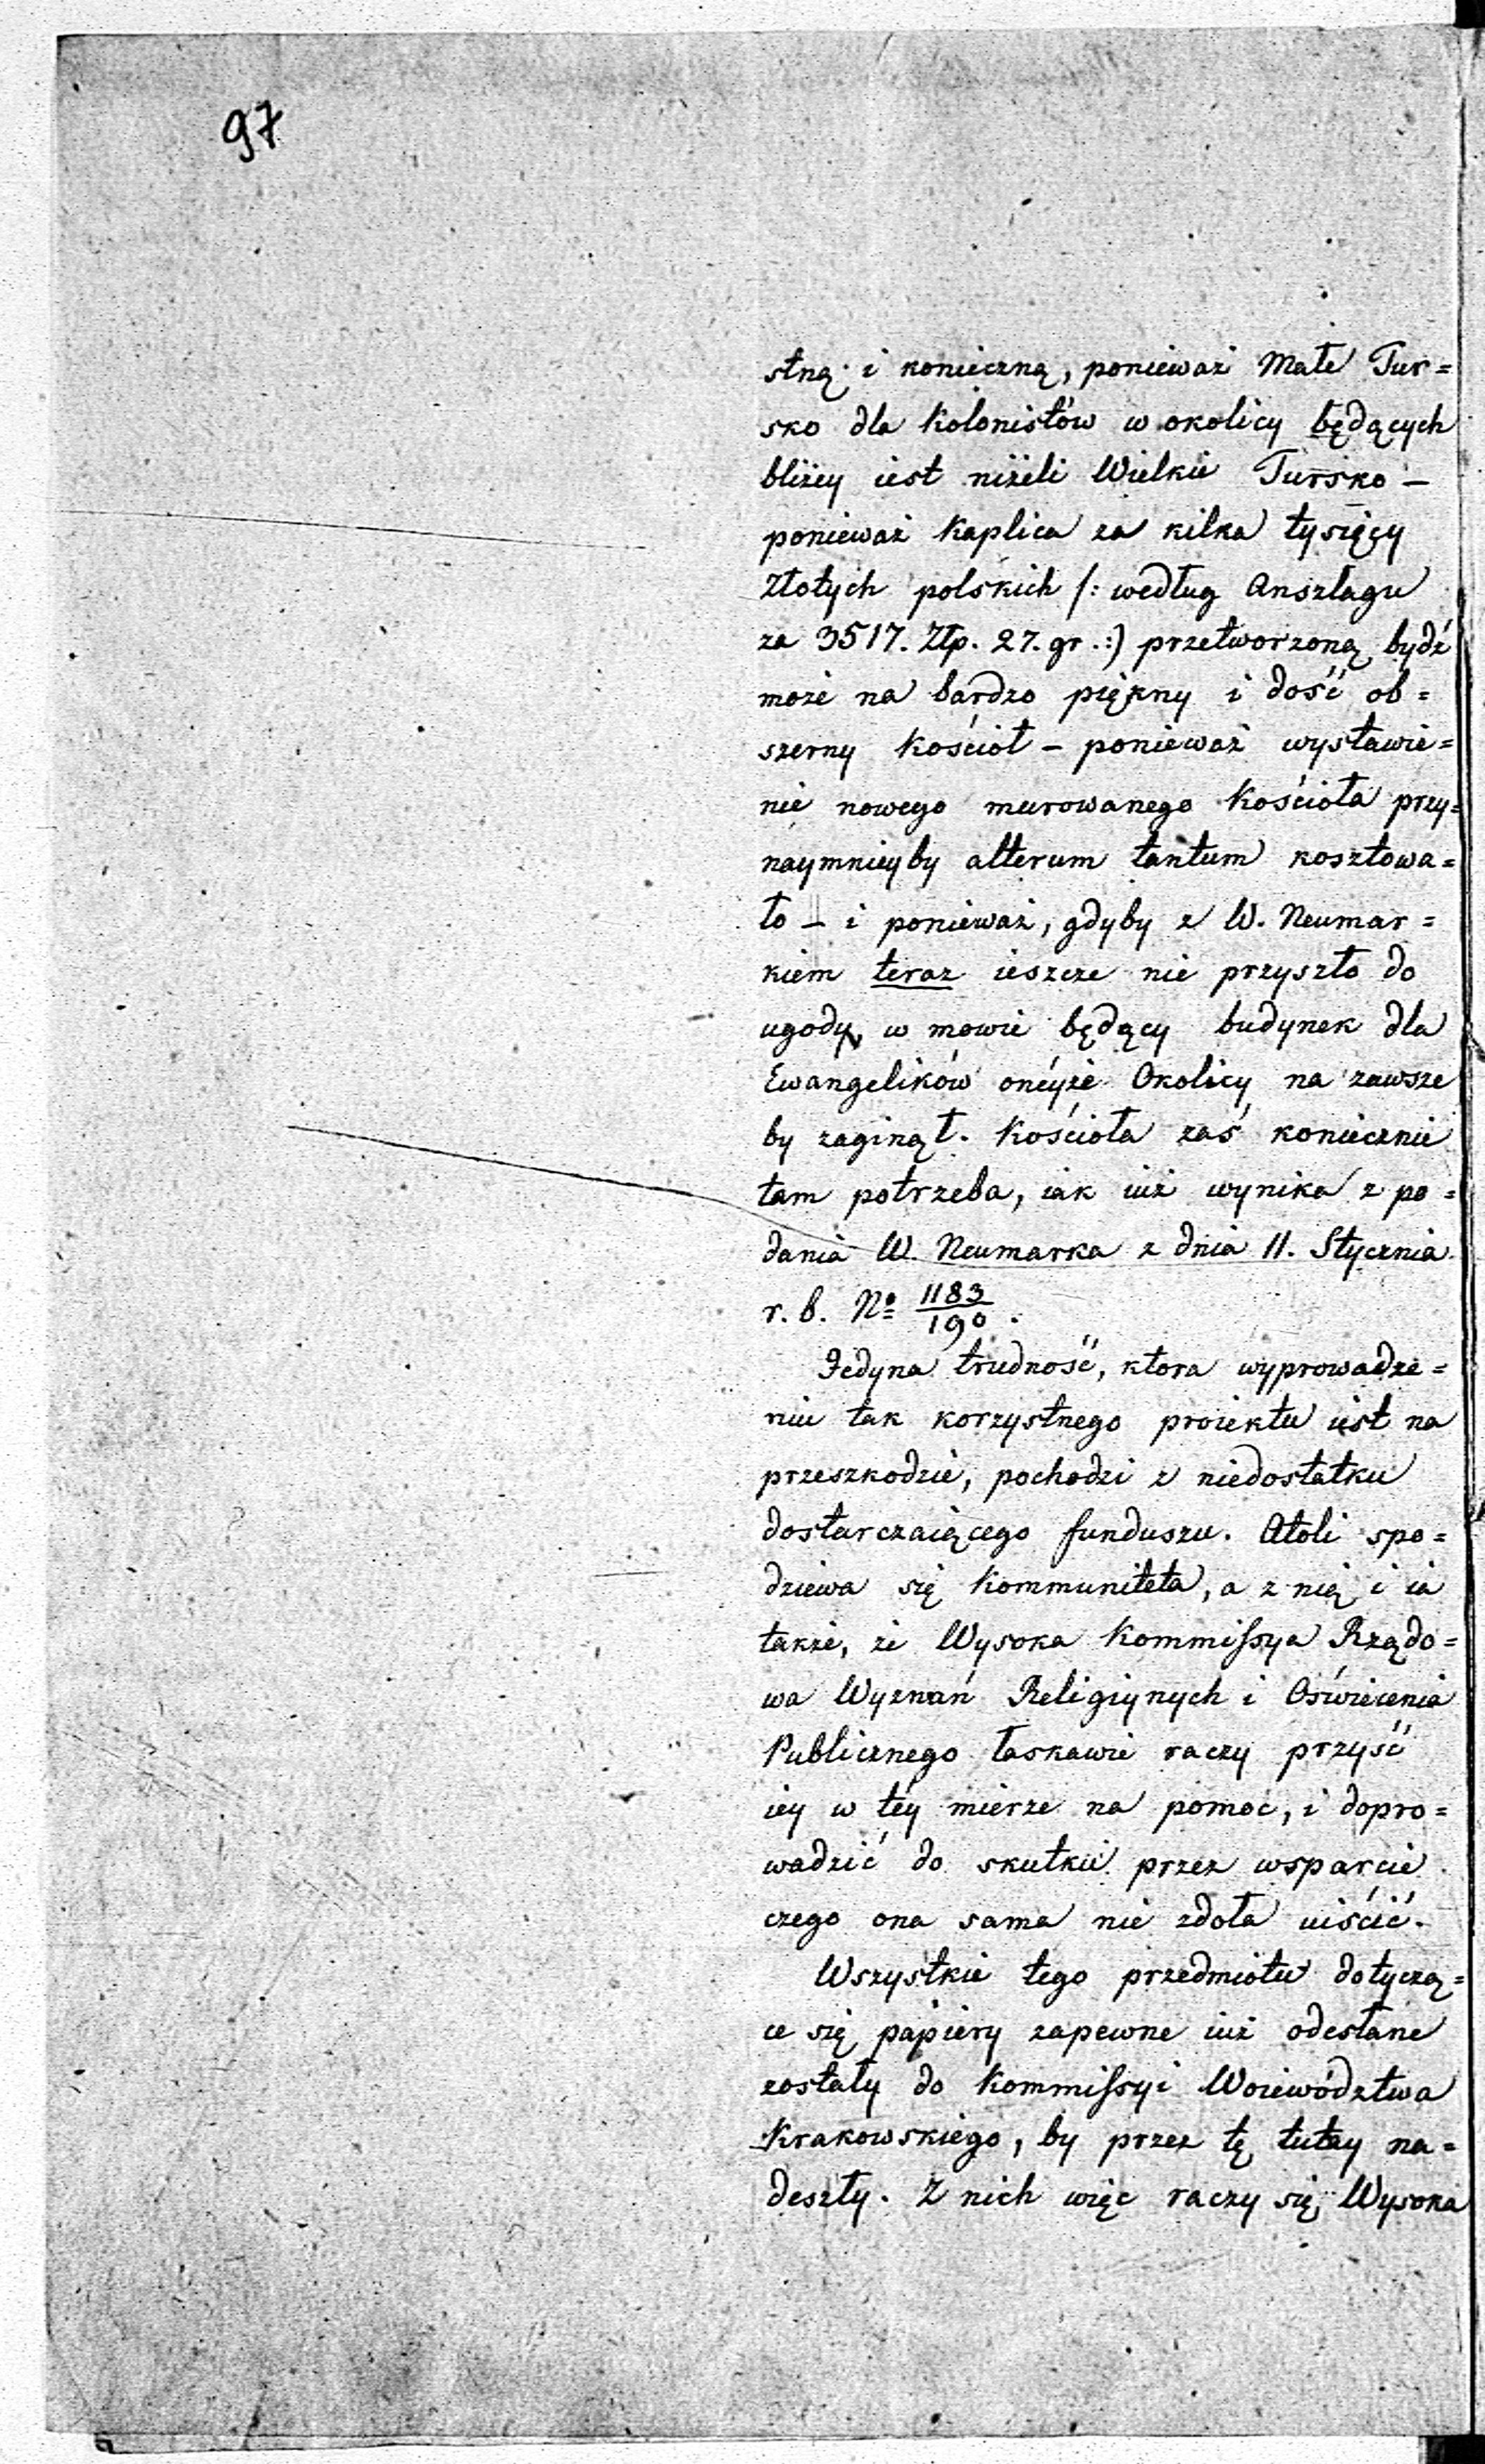 97
stną i konieczną, ponieważ Małe Tur=
sko dla Kolonistów w okolicy będących
bliżey iest niżeli Wielkie Tursko –
ponieważ Kaplica za kilka tysięcy
Złotych polskich /: według Anszlagu
za 3517. Złp. 27. gr. :) przetworzoną bydź
może na bardzo piękny i dość ob=
szerny Kościoł – ponieważ wystawie=
nie nowego murowanego Kościoła przy=
naymnieyby alterum tantum kosztowa=
ło – i ponieważ, gdyby z W. Neumar=
kiem teraz ieszcze nie przyszło do
ugody, w mowie będący budynek dla
Ewangelików onéyże Okolicy na zawsze
by zaginął. Kościoła zaś koniecznie
tam potrzeba, iak iuż wynika z po=
dania W. Neumarka z dnia 11. Stycznia
r. b. No 1183/190.
Jedyna trudność, ktora wyprowadze=
niu tak korzystnego proiektu iest na
przeszkodzie, pochodzi z niedostatku
dostarczaiącego funduszu. Atoli spo=
dziewa się Kommuniteta, a z nią i ia
także, że Wysoka Kommissya Rządo=
wa Wyznań Religiynych i Oświecenia
Publicznego łaskawie raczy przyść
iey w téy mierze na pomoc, i dopro=
wadzić do skutku przez wsparcie
czego ona sama nie zdoła uiścić.
Wszystkie tego przedmiotu dotyczą=
ce się papiery zapewne iuż odesłane
zostały do Kommissyi Woiewództwa
Krakowskiego, by przez tę tutay na=
deszły. Z nich więc raczy się Wysoka